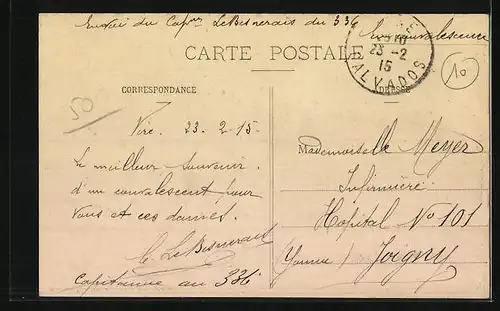 Envoi du Capne LeBesnerais du 336
En convalescence
CARTE POSTALE
23 -2
15
CALVADOS
10
50
CORRESPONDANCE
ADRESSE
Vire. 23. 2. 15.
Le meilleur souvenir
d'un convalescent pour
vous et ces dames.
C. LeBesnerais
capitaine au 336
Mademoiselle Meyer
Infirmière
Hôpital No 101
(Yonne) Joigny